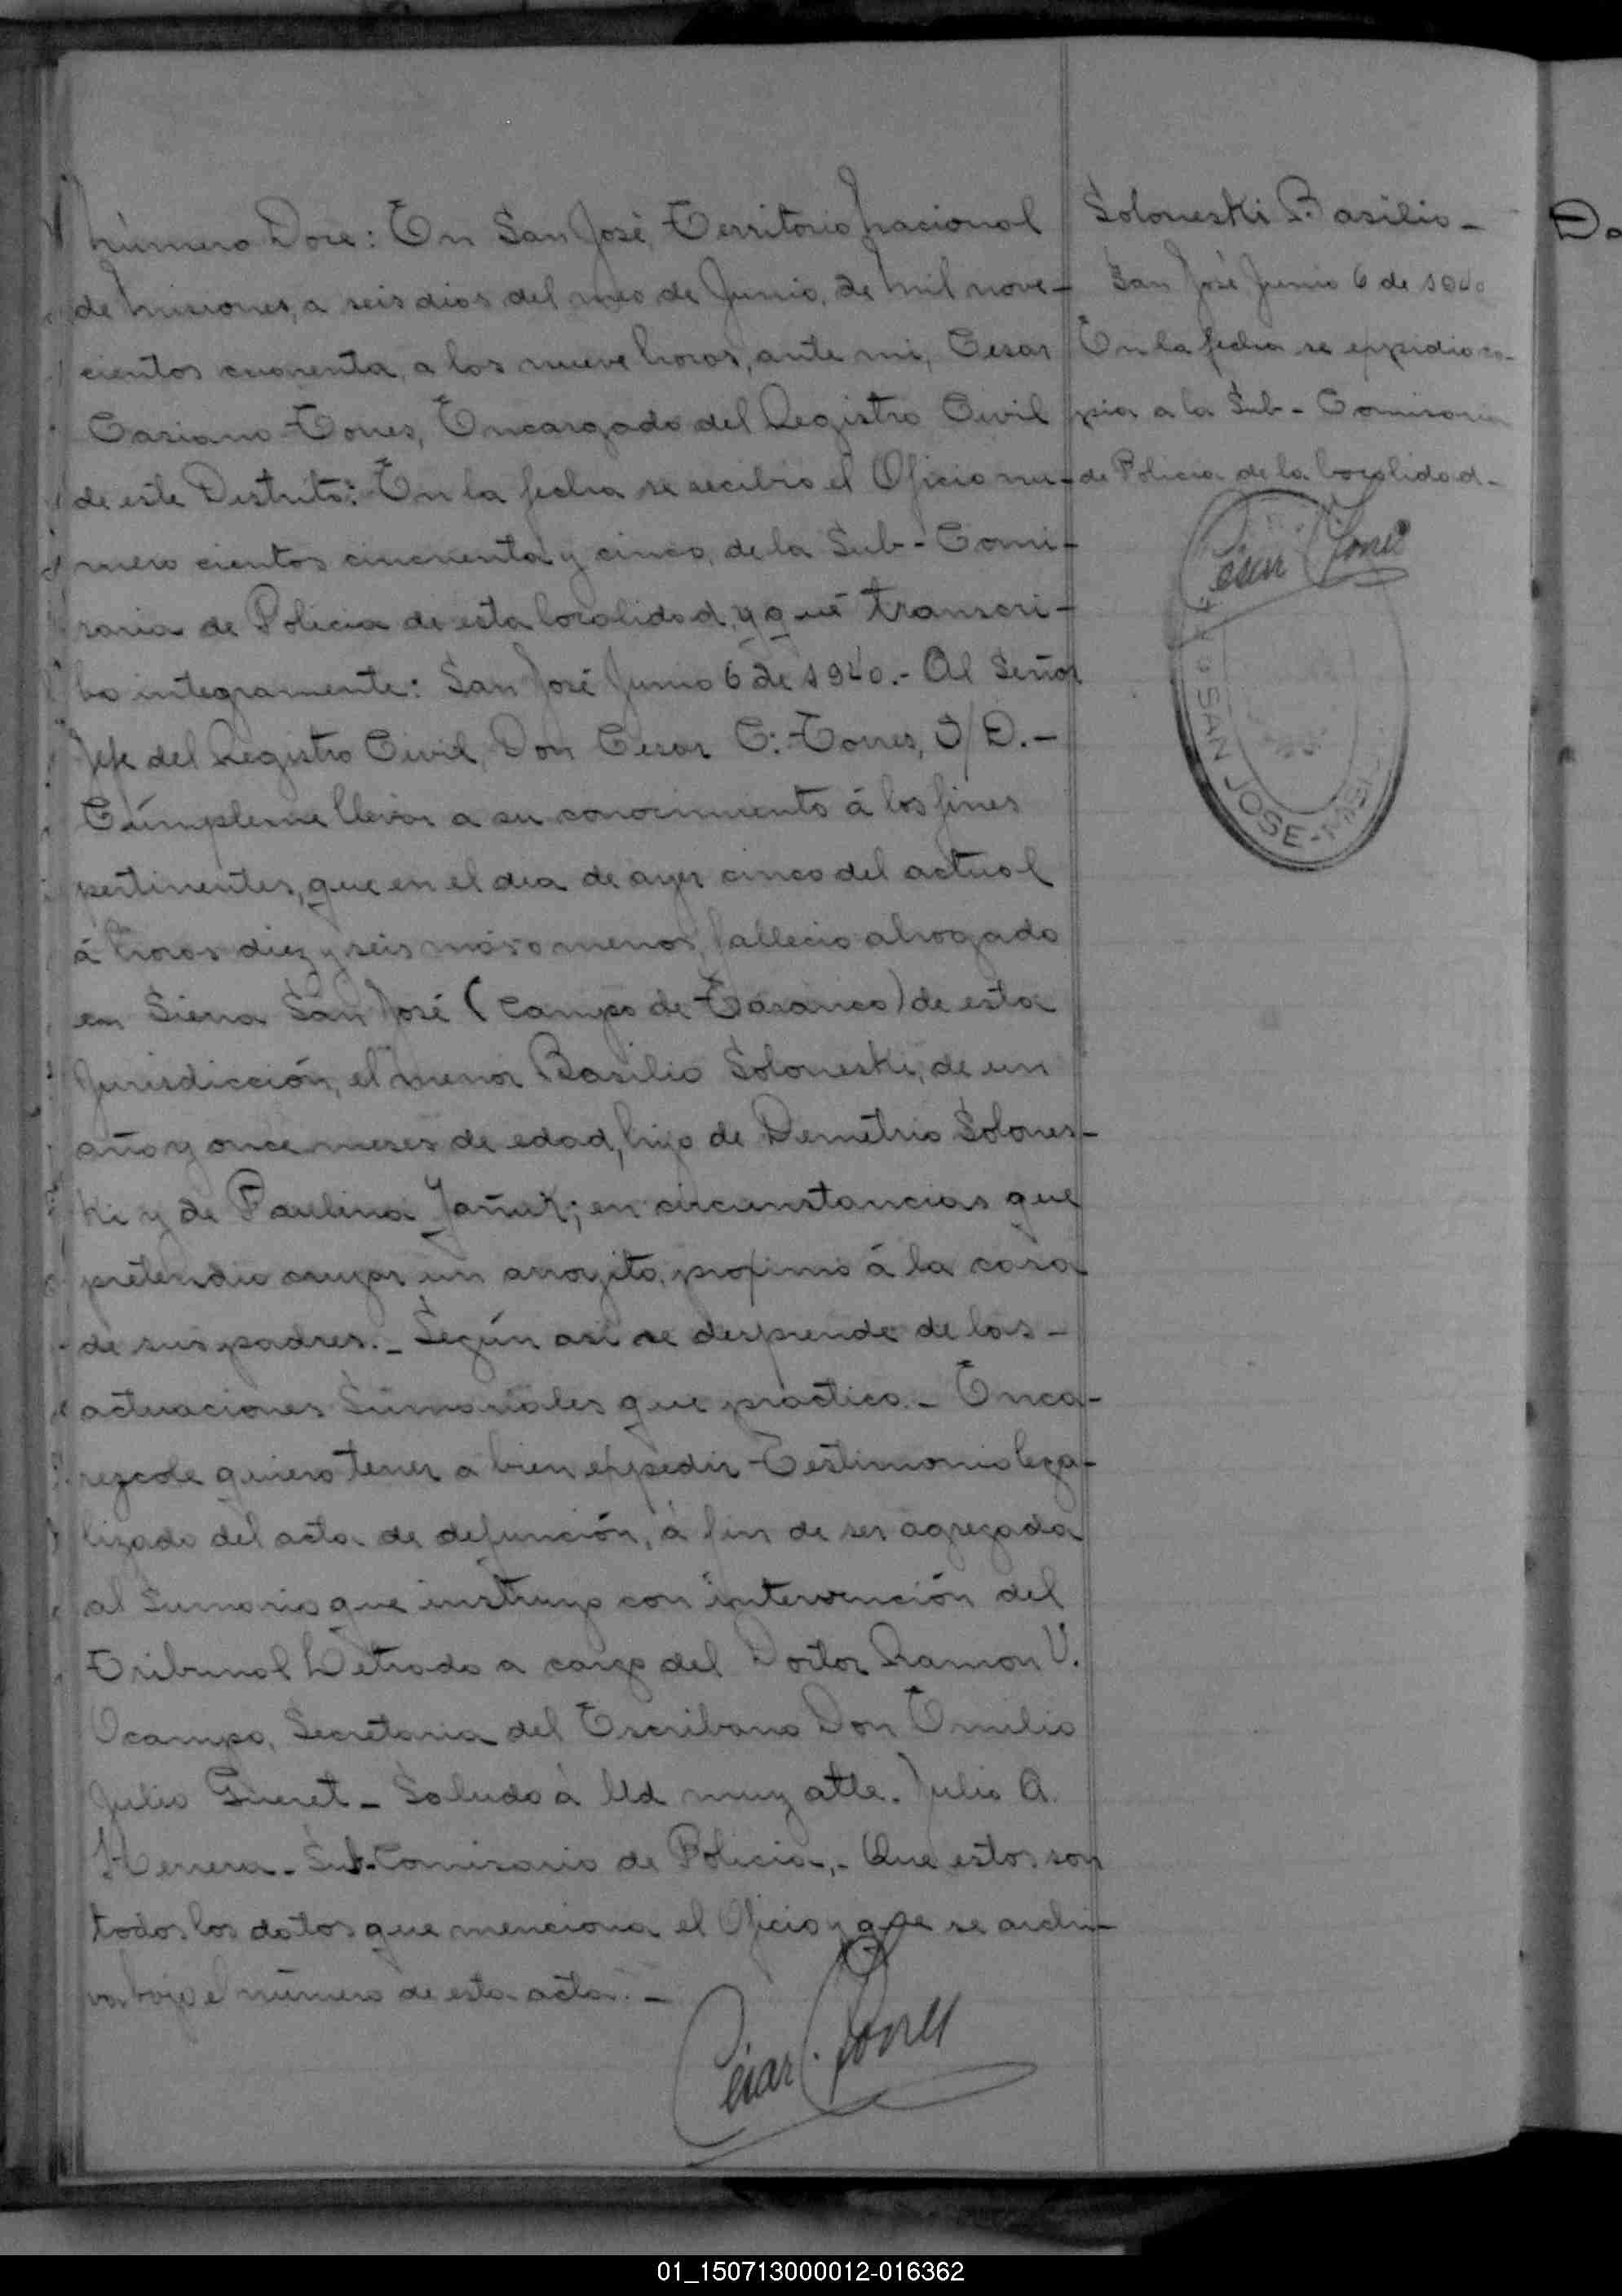 Número Doce: En San José, Territorio Nacional
de Misiones, a seis dias del mes de Junio, de Mil nove-
cientos cuarenta, a las nueve horas, ante mi, Cesar
Casiano Torres, Encargado del Registro Civil
de este Distrito: En la fecha se recibio el Oficio nu-
mero cientos cincuenta y cinco, de la Sub-Comi-
saria de Policia de esta localidad, y que transcri-
bo integramente: San José Junio 6 de 1940.- Al Señor
Jefe del Registro Civil, Don Cesar C. Torres, S/D.-
Cúmpleme llevar a su conocimiento á los fines
pertinentes, que en el dia de ayer cinco del actual
á horas diez y seis más o menos, fallecio ahogado
en Sierra San José (Campo de ) de esta
Jurisdicción, el menor Basilio Soloneski, de un
año y once meses de edad, hijo de Demetrio Solones-
ki y de Paulina ; en circunstancias que
pretendio cruzar un arroyito, proximo á la casa
de sus padres.- Según asi se desprende de las-
actuaciones Sumariales que practico.- Enca-
rezcole quiera tener a bien expedir Testimonio lega-
lizado del acta de defunción, á fin de ser agregada
al Sumario que instruyo con intervención del
Tribunal Letrado a cargo del Doctor Ramon V.
Ocampo, Secretaria del Escribano Don Emilio
Julio - Saludo á Ud muy atte. Julio A.
Herrera - Sub-Comisario de Policia.- Que estos son
todos los datos que menciona el Oficio y que se archi-
va bajo el número de esta acta.-
Cesar C. Torres
Soloneski Basilio-
San José Junio 6 de 1940
En la fecha se expidio co-
pia a la Sub-Comisaria
de Policia de la localidad-
Cesar C. Torres
SAN JOSE-
01_150713000012-016362